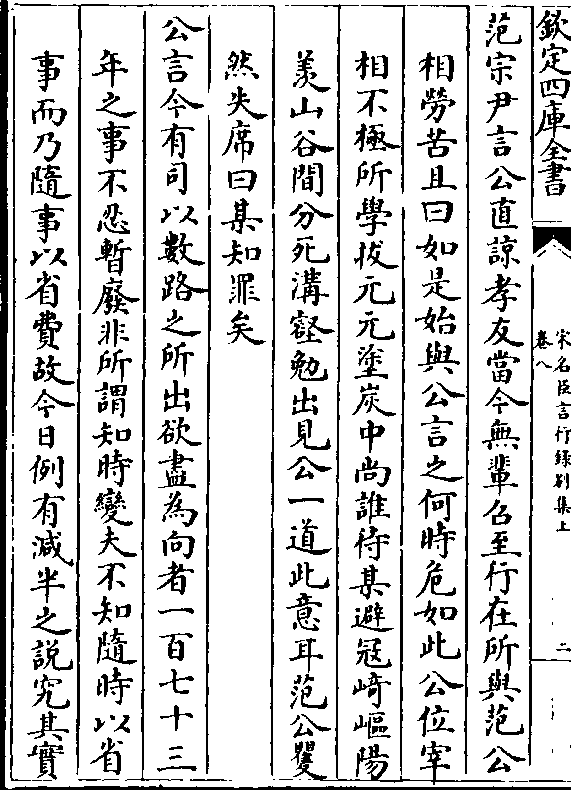 欽定四庫全書
宋名臣言行録别集上
卷八
二
范宗尹言公直諒孝友當今無輩召至行在所與范公
相勞苦且曰如是始與公言之何時危如此公位宰
相不極所學拔元元塗炭中尚誰待某避冦﨑嶇陽
羡山谷間分死溝壑勉出見公一道此意耳范公矍
然失席曰某知罪矣
公言今有司以數路之所出欲盡為向者一百七十三
年之事不忍暫廢非所謂知時變夫不知隨時以省
事而乃隨事以省費故今日例有減半之説究其實